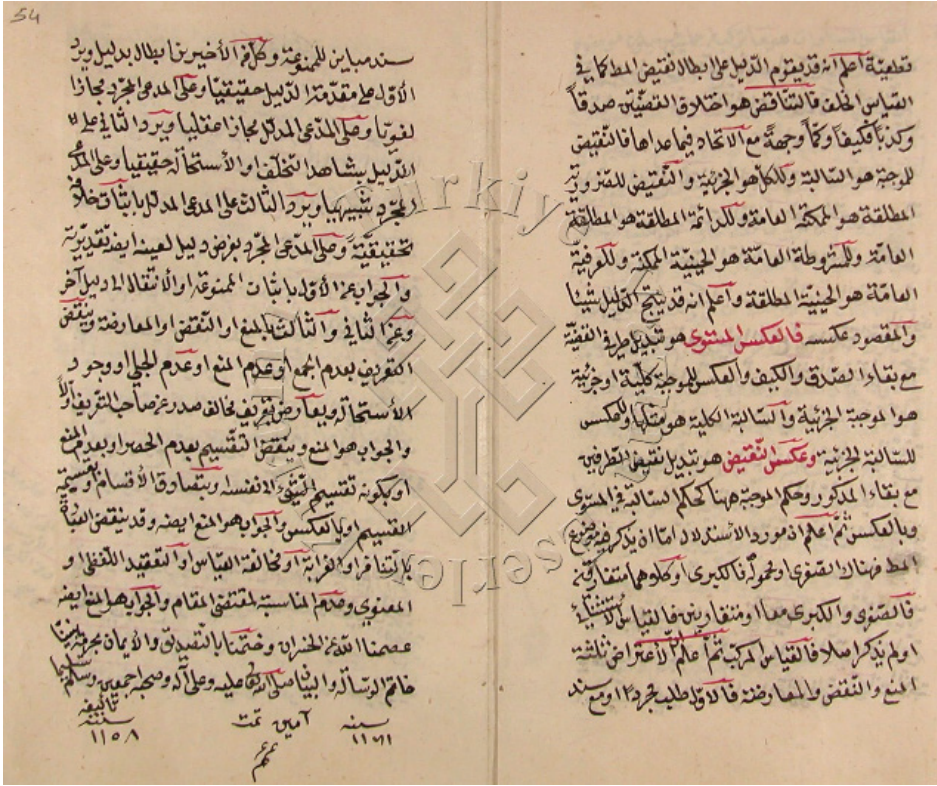 54
قطعيّة اعلم انه قد يقوم الدّليل على ابطال نقيض المط كما فى
القياس الخلف فالتناقض هو اختلاف القضيّتين صدقاً
وكذباً فكيفاً وكمّاً وجهةً مع الاتحاد فيما عداها فالنّقيض
للموجبة هو السّالبة وللكلّى هو الجزئية والنّقيض للضّروريّة
المطلقة هو الممكنة العامة وللدائمة المطلقة هو المطلقة
العامّة وللمشروطة العامّة هو الحينيّة الممكنة وللعرفيّة
العامّة هو الحينيّة المطلقة واعلم انه قد ينتج الدّليل شيئا
والمقصود عكسه فالعكس المستوى هو تبديل طرفى القضيّة
مع بقاء الصّدق والكيف والعكس للموجبة كلّية او جزئية
هو الموجبة الجزئية والسّالبة الكلية هو مثلها ولا عكس
للسّالبة الجزئية وعكس النّقيض هو تبديل نقيض الطّرفين
مع بقاء المذكور وحكم الموجبة ههنا كحكم السّالبة فى المستوى
وبالعكس ثمّ اعلم ان مورد الاستدلال امّا ان يذكر فيه موضوع
المط فهناك الصّغرى او محموله فالكبرى او كلاهما متفارقين
فالصّغرى والكبرى معا او متقاربين فالقياس الاستثنائى
او لم يذكر اصلا فالقياس المركّب ثمّ اعلم الاعتراض ثلثة
المنع والنّقض والمعارضة فالاوّل طلب مجرد او مع سند
سند مباين للممنوعة وكل من الأخيرين ابطال بدليل ويرد
الأوّل على مقدّمة الدّليل حقيقيّا وعلى المدعى المجرّد مجازا
لغويّا وعلى المدّعى المدلّل مجازا عقليا ويرد الثانى على
الدّليل بشاهد التخلّف او الأستحالة حقيقيا وعلى المدّعى
المجرّد تشبيهيا ويرد الثالث على المدعى المدلّل باثبات خلافه
تحقيقيّة وعلى المدّعى المجرّد بفرض دليل لعينه ايضه تقديريّة
والجواب عن الأوّل باثبات الممنوعة او الانتقال الى دليل آخر
وعن الثانى والثالث بالمنع او النّقض او المعارضة وينقض
التعريف بعدم الجمع او عدم المنع او عدم الجلى او وجود
الأستحالة ويعارض بتعريف مخالف صدر عن صاحب التعريف اوّلا
والجواب هو المنع وينقض التّقسيم بعدم الحصر او بعدم المنع
او بكونه تقسيم الشّئ الى نفسه او بتصادق الأقسام او بقسيمية
القسيم او بالعكس والجواب هو المنع ايضه وقد ينقض العبارة
بالتّنافر او الغرابة او مخالفة القياس او التّعقيد اللّفظى او
المعنوى وعدم المناسبة لمقتضى المقام والجواب هو المنع ايضه
عصمنا اللّه عن الخسران وختمنا بالتّصديق والأيمان بحرمة نبيّنا
خاتم الرّسالة والبيان صلى اللّه عليه وعلى آله وصحبه اجمعين وسلّم تسليما
سنه ١١٦١
آمين تمت
تأليفه سنة ١١٥٨
Türkiye